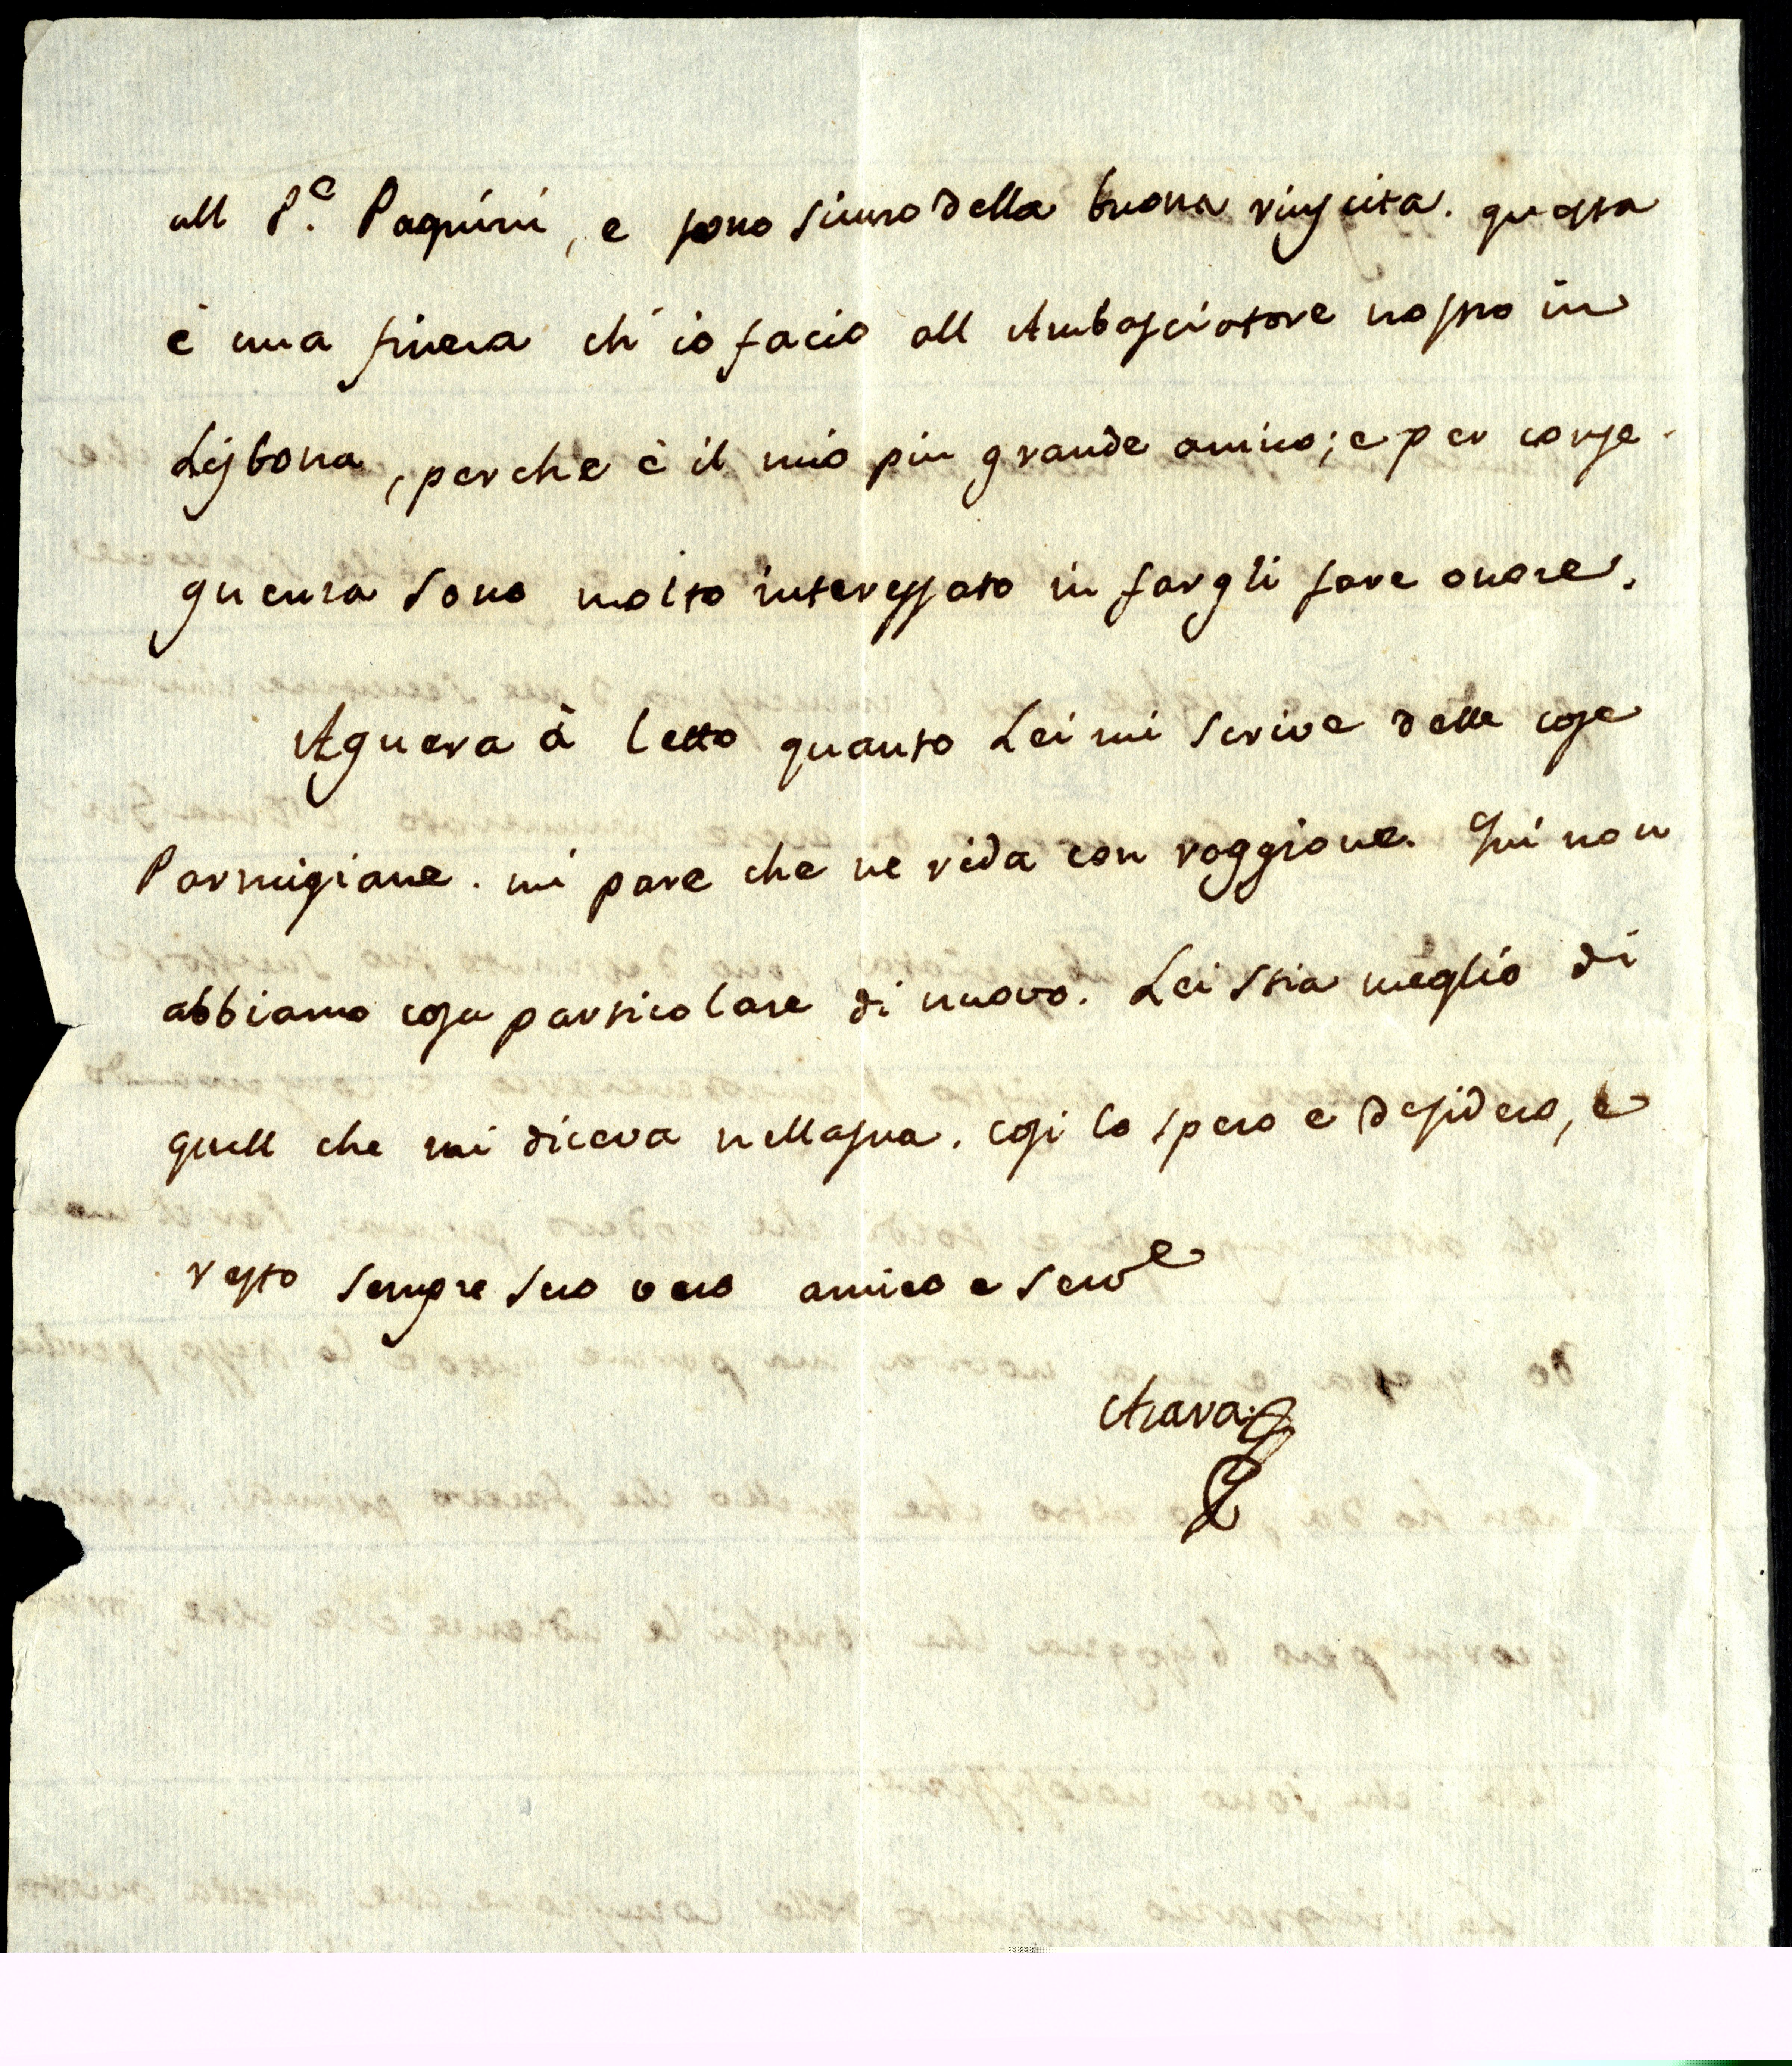 all P.e Paquini, e sono sicuro della buona riuscita. questa
è una fineza ch' io facio all Ambasciatore nostro in
Lisbona, perche è il mio piu grande amico; e per conse-
guenza sono molto interessato in fargli fare onore.
Azuera à letto quanto Lei mi scrive delle cose
Parmigiane. mi pare che ne rida con raggione. Qui non
abbiamo cosa particolare di nuovo. Lei stia meglio di
quell che mi diceva nella sua. cosi lo spero e desidero, e
resto sempre suo vero amico e serv.e
Azara